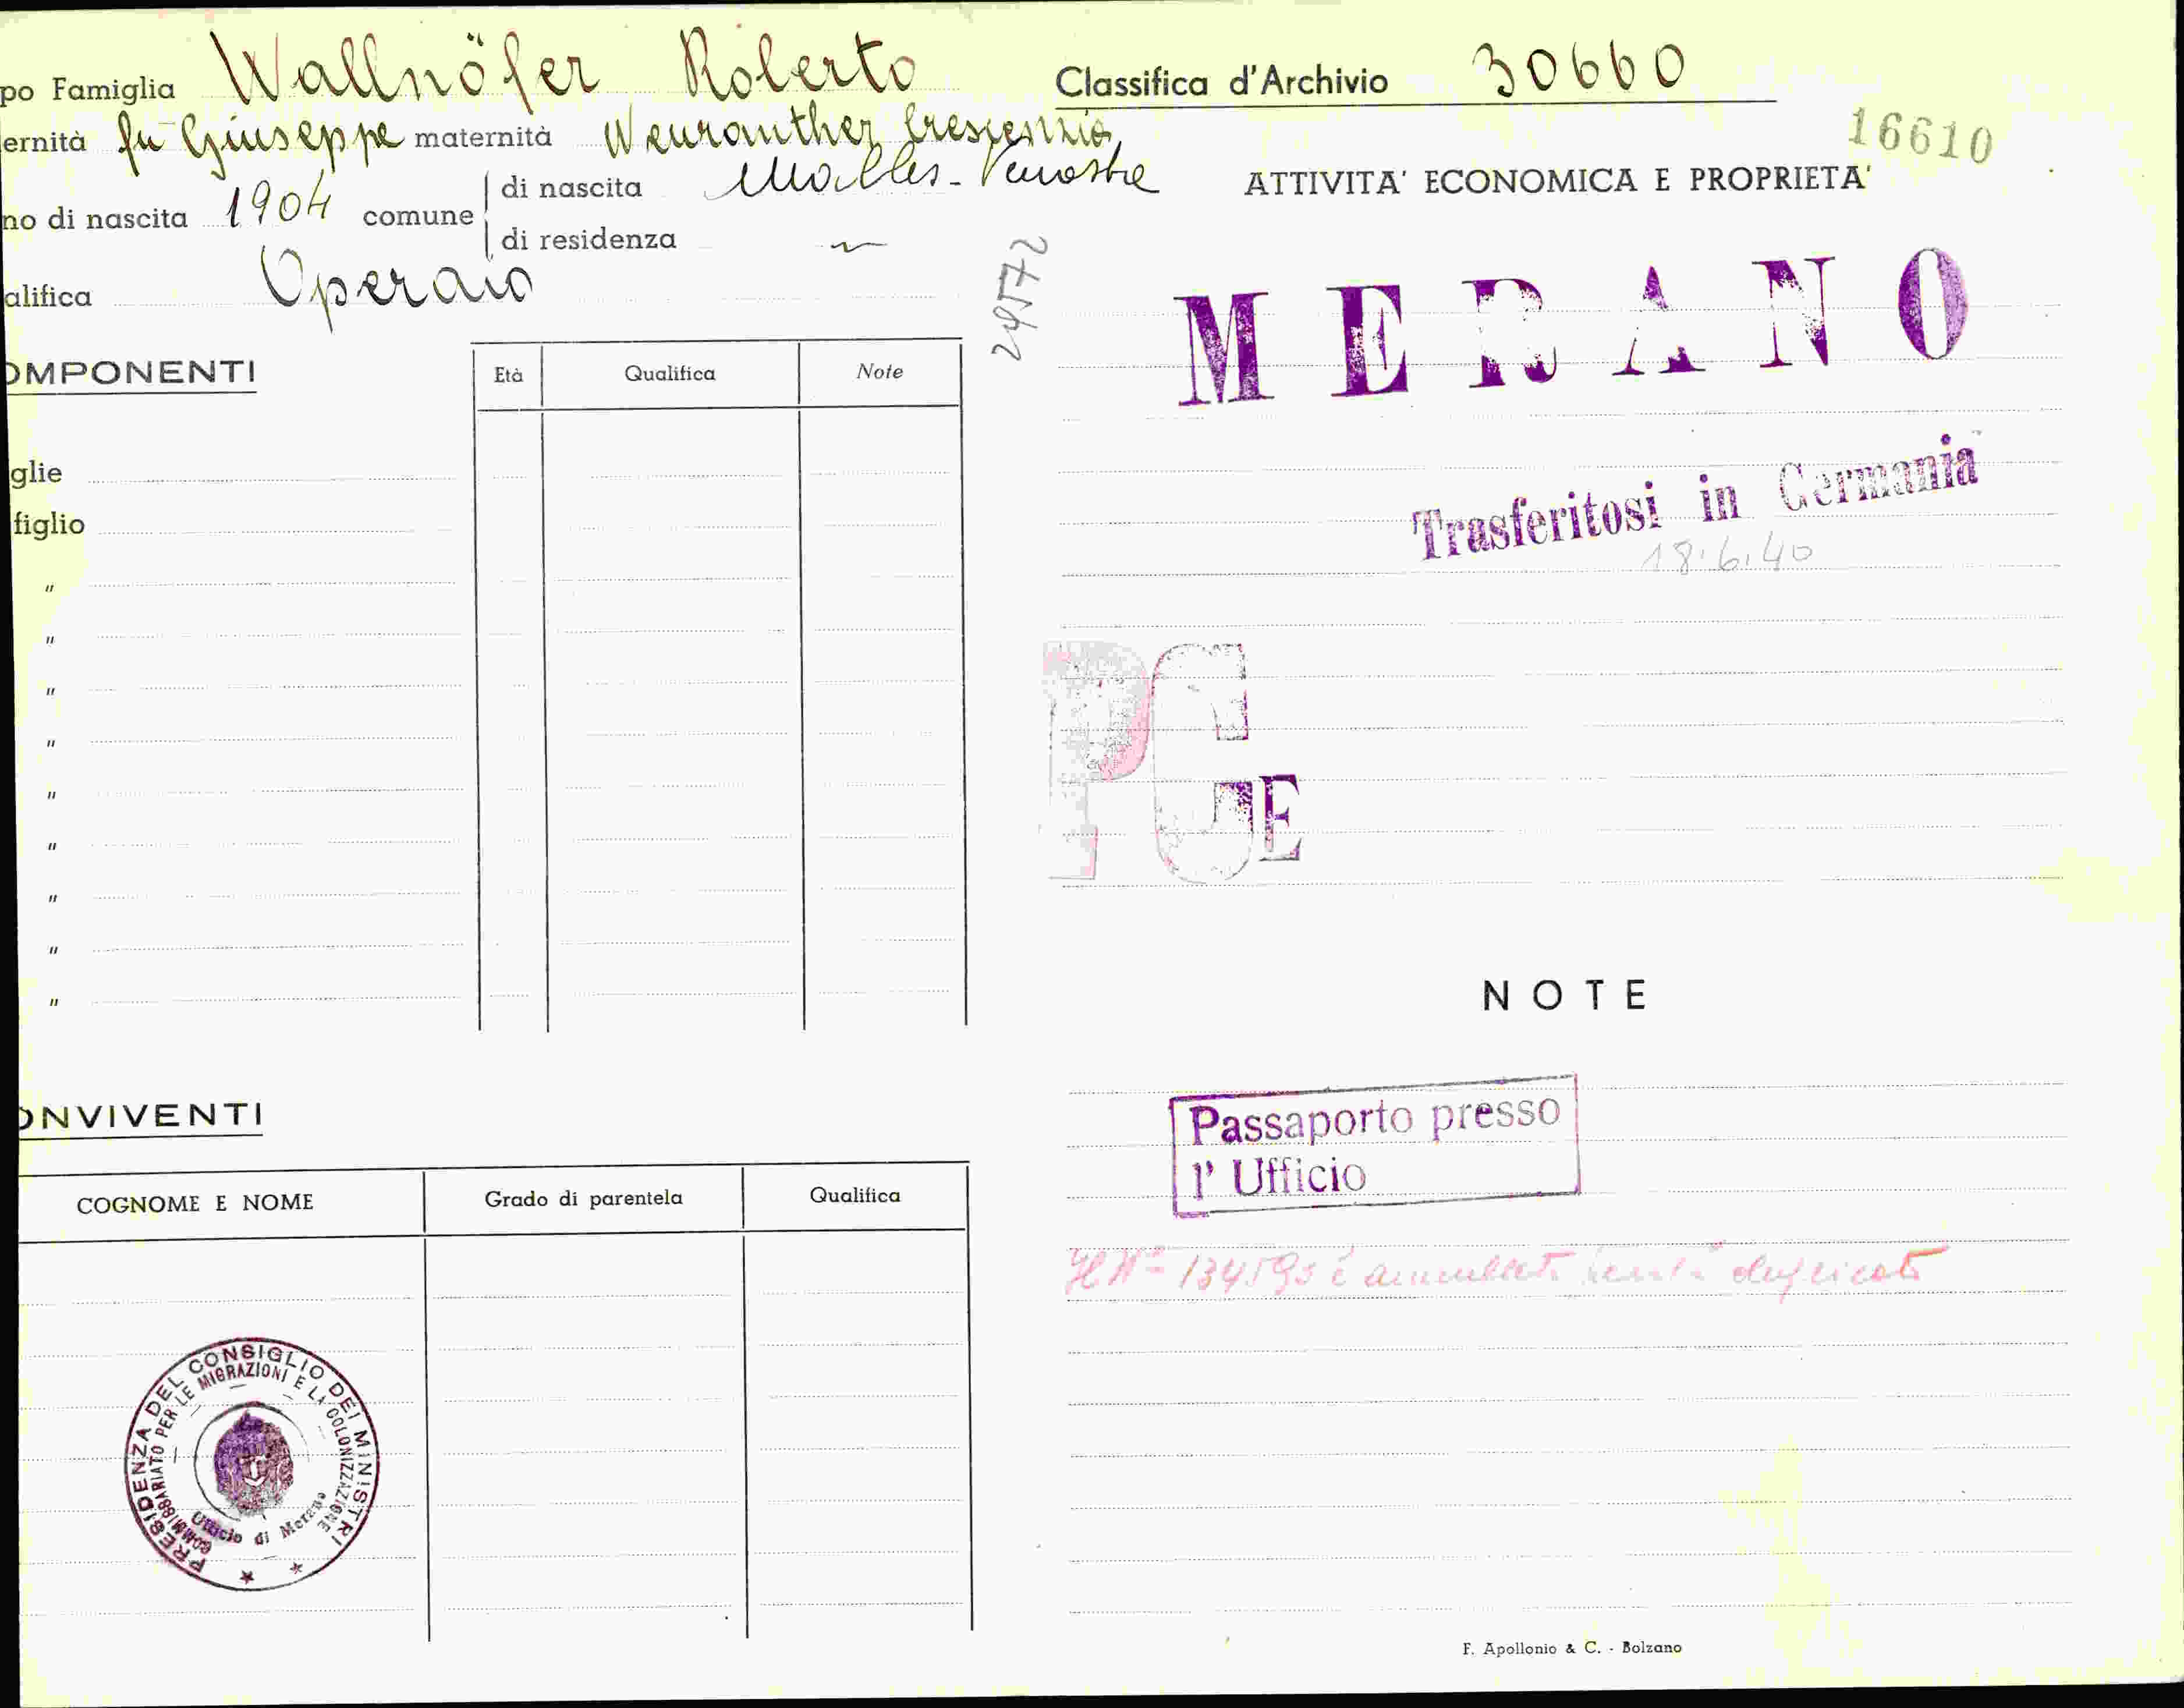 po Famiglia Wallnöfer Roberto
ernità fu Giuseppe maternità Crescenzia
no di nascita 1904 comune di nascita Malles-Venosta
di residenza ~
alifica Operaio
OMPONENTI
Età Qualifica Note
glie
figlio
"
"
"
"
"
"
"
"
"
ONVIVENTI
COGNOME E NOME Grado di parentela Qualifica
PRESIDENZA DEL CONSIGLIO DEI MINISTRI
COMMISSARIATO PER LE MIGRAZIONI E LA COLONIZZAZIONE
Ufficio di Merano
24572
Classifica d'Archivio 30660
16610
ATTIVITA' ECONOMICA E PROPRIETA'
MERANO
Trasferitosi in Germania
18.6.40
PC
E
NOTE
Passaporto presso
l' Ufficio
Il N° 134593 è annullato duplicato
F. Apollonio & C. - Bolzano